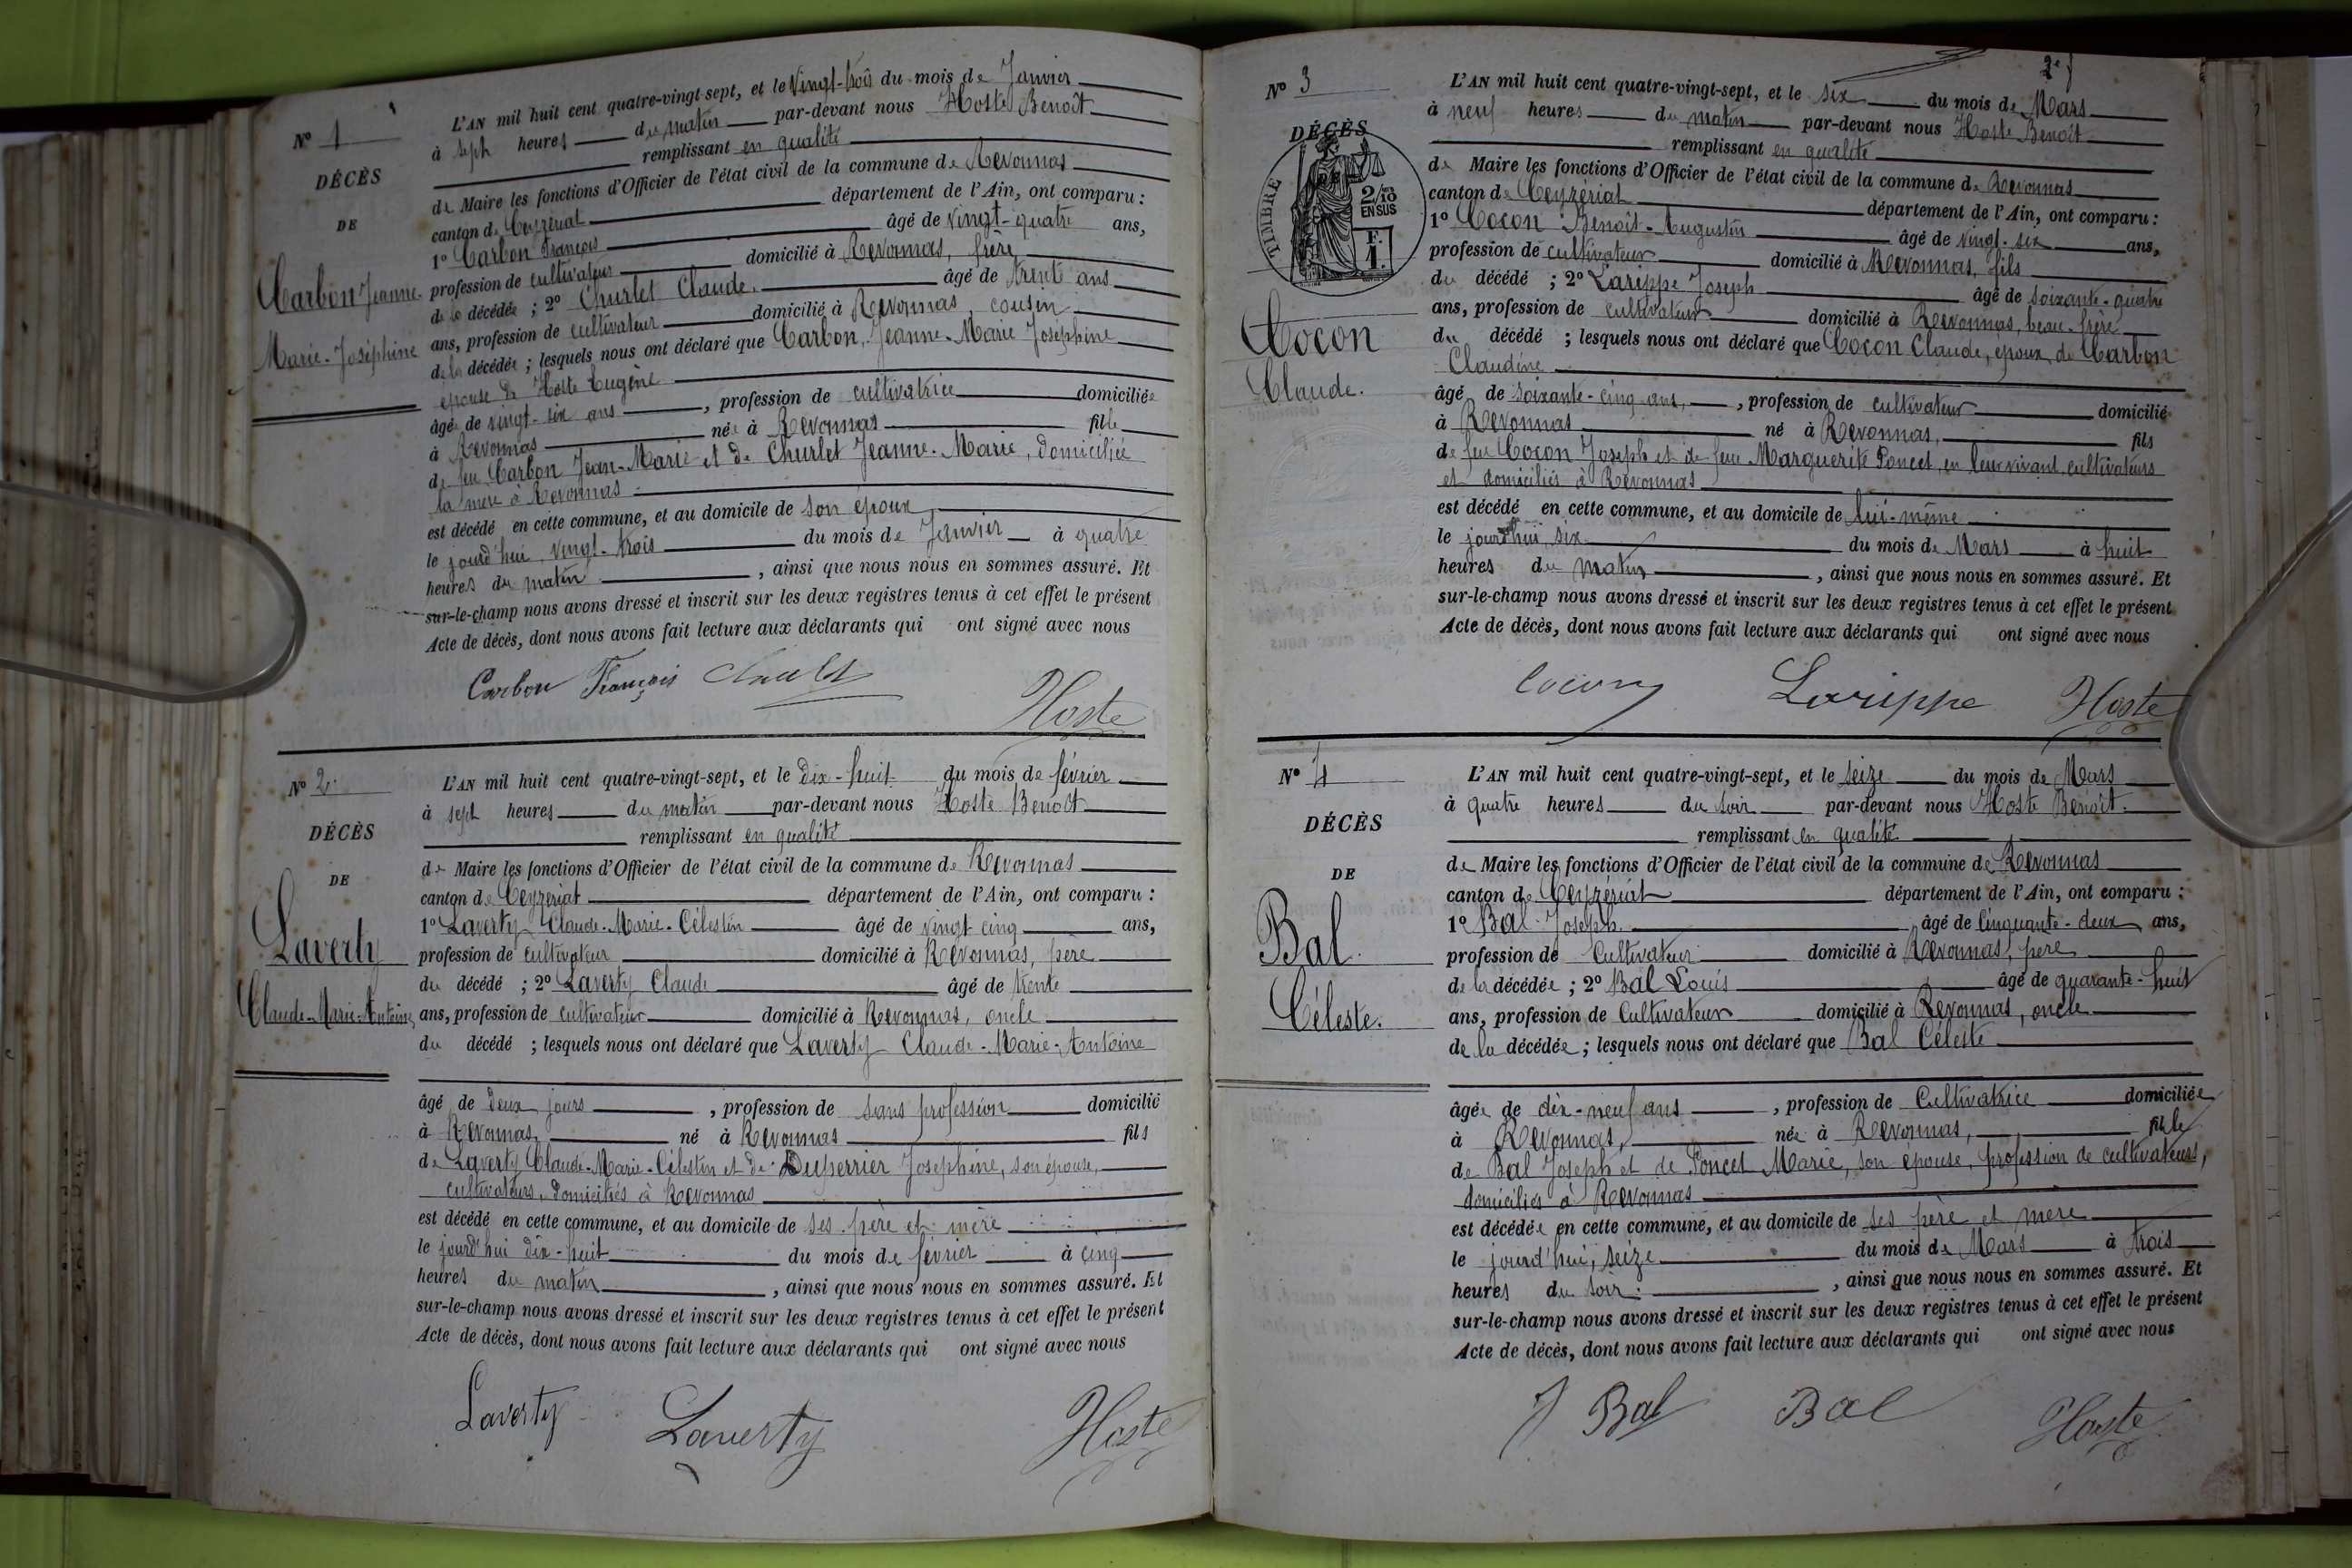 N° 1
DÉCÈS
DE
Carbon Jeanne-
Marie-Joséphine
L'AN mil huit cent quatre-vingt-sept, et le Vingt-trois du mois de Janvier
à sept heures du matin par-devant nous Hoste Benoît
remplissant en qualité
de Maire les fonctions d'Officier de l'état civil de la commune de Revonnas
canton de Ceyzériat département de l'Ain, ont comparu :
1° Carbon François âgé de vingt-quatre ans,
profession de cultivateur domicilié à Revonnas, frère
de la décédée ; 2° Churlet Claude, âgé de trente ans
ans, profession de cultivateur domicilié à Revonnas, cousin
de la décédée ; lesquels nous ont déclaré que Carbon, Jeanne-Marie Joséphine
épouse de Hoste Eugène
âgée de vingt-six ans, profession de cultivatrice domiciliée
à Revonnas née à Revonnas fille
de feu Carbon Jean-Marie et de Churlet Jeanne-Marie, domiciliée
la mère à Revonnas
est décédé en cette commune, et au domicile de son époux
le jourd'hui vingt-trois du mois de Janvier à quatre
heures du matin, ainsi que nous nous en sommes assuré. Et
sur-le-champ nous avons dressé et inscrit sur les deux registres tenus à cet effet le présent
Acte de décès, dont nous avons fait lecture aux déclarants qui ont signé avec nous
Carbon François Churlet
Hoste
N° 2
DÉCÈS
DE
Laverty
Claude-Marie-Antoine
L'AN mil huit cent quatre-vingt-sept, et le dix-huit du mois de février
à sept heures du matin par-devant nous Hoste Benoît
remplissant en qualité
de Maire les fonctions d'Officier de l'état civil de la commune de Revonnas
canton de Ceyzeriat département de l'Ain, ont comparu :
1° Laverty Claude-Marie-Célestin âgé de vingt cinq ans,
profession de cultivateur domicilié à Revonnas, père
du décédé ; 2° Laverty Claude âgé de trente
ans, profession de cultivateur domicilié à Revonnas, oncle
du décédé ; lesquels nous ont déclaré que Laverty Claude-Marie-Antoine
âgé de deux jours, profession de sans profession domicilié
à Revonnas, né à Revonnas fils
de Laverty Claude-Marie-Célestin et de Duperrier Josephine, son épouse,
cultivateurs, domiciliés à Revonnas
est décédé en cette commune, et au domicile de ses père et mère
le jourd'hui dix-huit du mois de février à cinq
heures du matin, ainsi que nous nous en sommes assuré. Et
sur-le-champ nous avons dressé et inscrit sur les deux registres tenus à cet effet le présent
Acte de décès, dont nous avons fait lecture aux déclarants qui ont signé avec nous
Laverty Laverty Hoste
2e
N° 3
DÉCÈS
TIMBRE
2/10
EN SUS
F.
1.
Cocon
Claude.
L'AN mil huit cent quatre-vingt-sept, et le six du mois de Mars
à neuf heures du matin par-devant nous Hoste Benoît
remplissant en qualité
de Maire les fonctions d'Officier de l'état civil de la commune de Revonnas
canton de Ceyzériat département de l'Ain, ont comparu :
1° Cocon Benoît-Augustin âgé de vingt-six ans,
profession de cultivateur domicilié à Revonnas, fils
du décédé ; 2° Larippe Joseph âgé de soixante-quatre
ans, profession de cultivateur domicilié à Revonnas, beau-frère
du décédé ; lesquels nous ont déclaré que Cocon Claude, époux de Carbon
Claudine
âgé de soixante-cinq ans, profession de cultivateur domicilié
à Revonnas né à Revonnas, fils
de feu Cocon Joseph et de feue Marguerite Poncet, en leur vivant cultivateurs
et domiciliés à Revonnas
est décédé en cette commune, et au domicile de lui-même
le jourd'hui six du mois de Mars à huit
heures du matin, ainsi que nous nous en sommes assuré. Et
sur-le-champ nous avons dressé et inscrit sur les deux registres tenus à cet effet le présent
Acte de décès, dont nous avons fait lecture aux déclarants qui ont signé avec nous
Cocon Larippe Hoste
N° 4
DÉCÈS
DE
Bal
Céleste.
L'AN mil huit cent quatre-vingt-sept, et le seize du mois de Mars
à quatre heures du soir par-devant nous Hoste Benoît.
remplissant en qualité
de Maire les fonctions d'Officier de l'état civil de la commune de Revonnas
canton de Ceyzériat département de l'Ain, ont comparu :
1° Bal Joseph âgé de cinquante-deux ans,
profession de Cultivateur domicilié à Revonnas, père
de la décédée ; 2° Bal Louis âgé de quarante-huit
ans, profession de Cultivateur domicilié à Revonnas, oncle
de la décédée ; lesquels nous ont déclaré que Bal Céleste
âgée de dix-neuf ans, profession de Cultivatrice domiciliée
à Revonnas, née à Revonnas, fille
de Bal Joseph et de Poncet Marie, son épouse, profession de cultivateurs,
domiciliés à Revonnas
est décédée en cette commune, et au domicile de ses père et mère
le jourd'hui, seize du mois de Mars à trois
heures du soir, ainsi que nous nous en sommes assuré. Et
sur-le-champ nous avons dressé et inscrit sur les deux registres tenus à cet effet le présent
Acte de décès, dont nous avons fait lecture aux déclarants qui ont signé avec nous
J Bal Bal Hoste